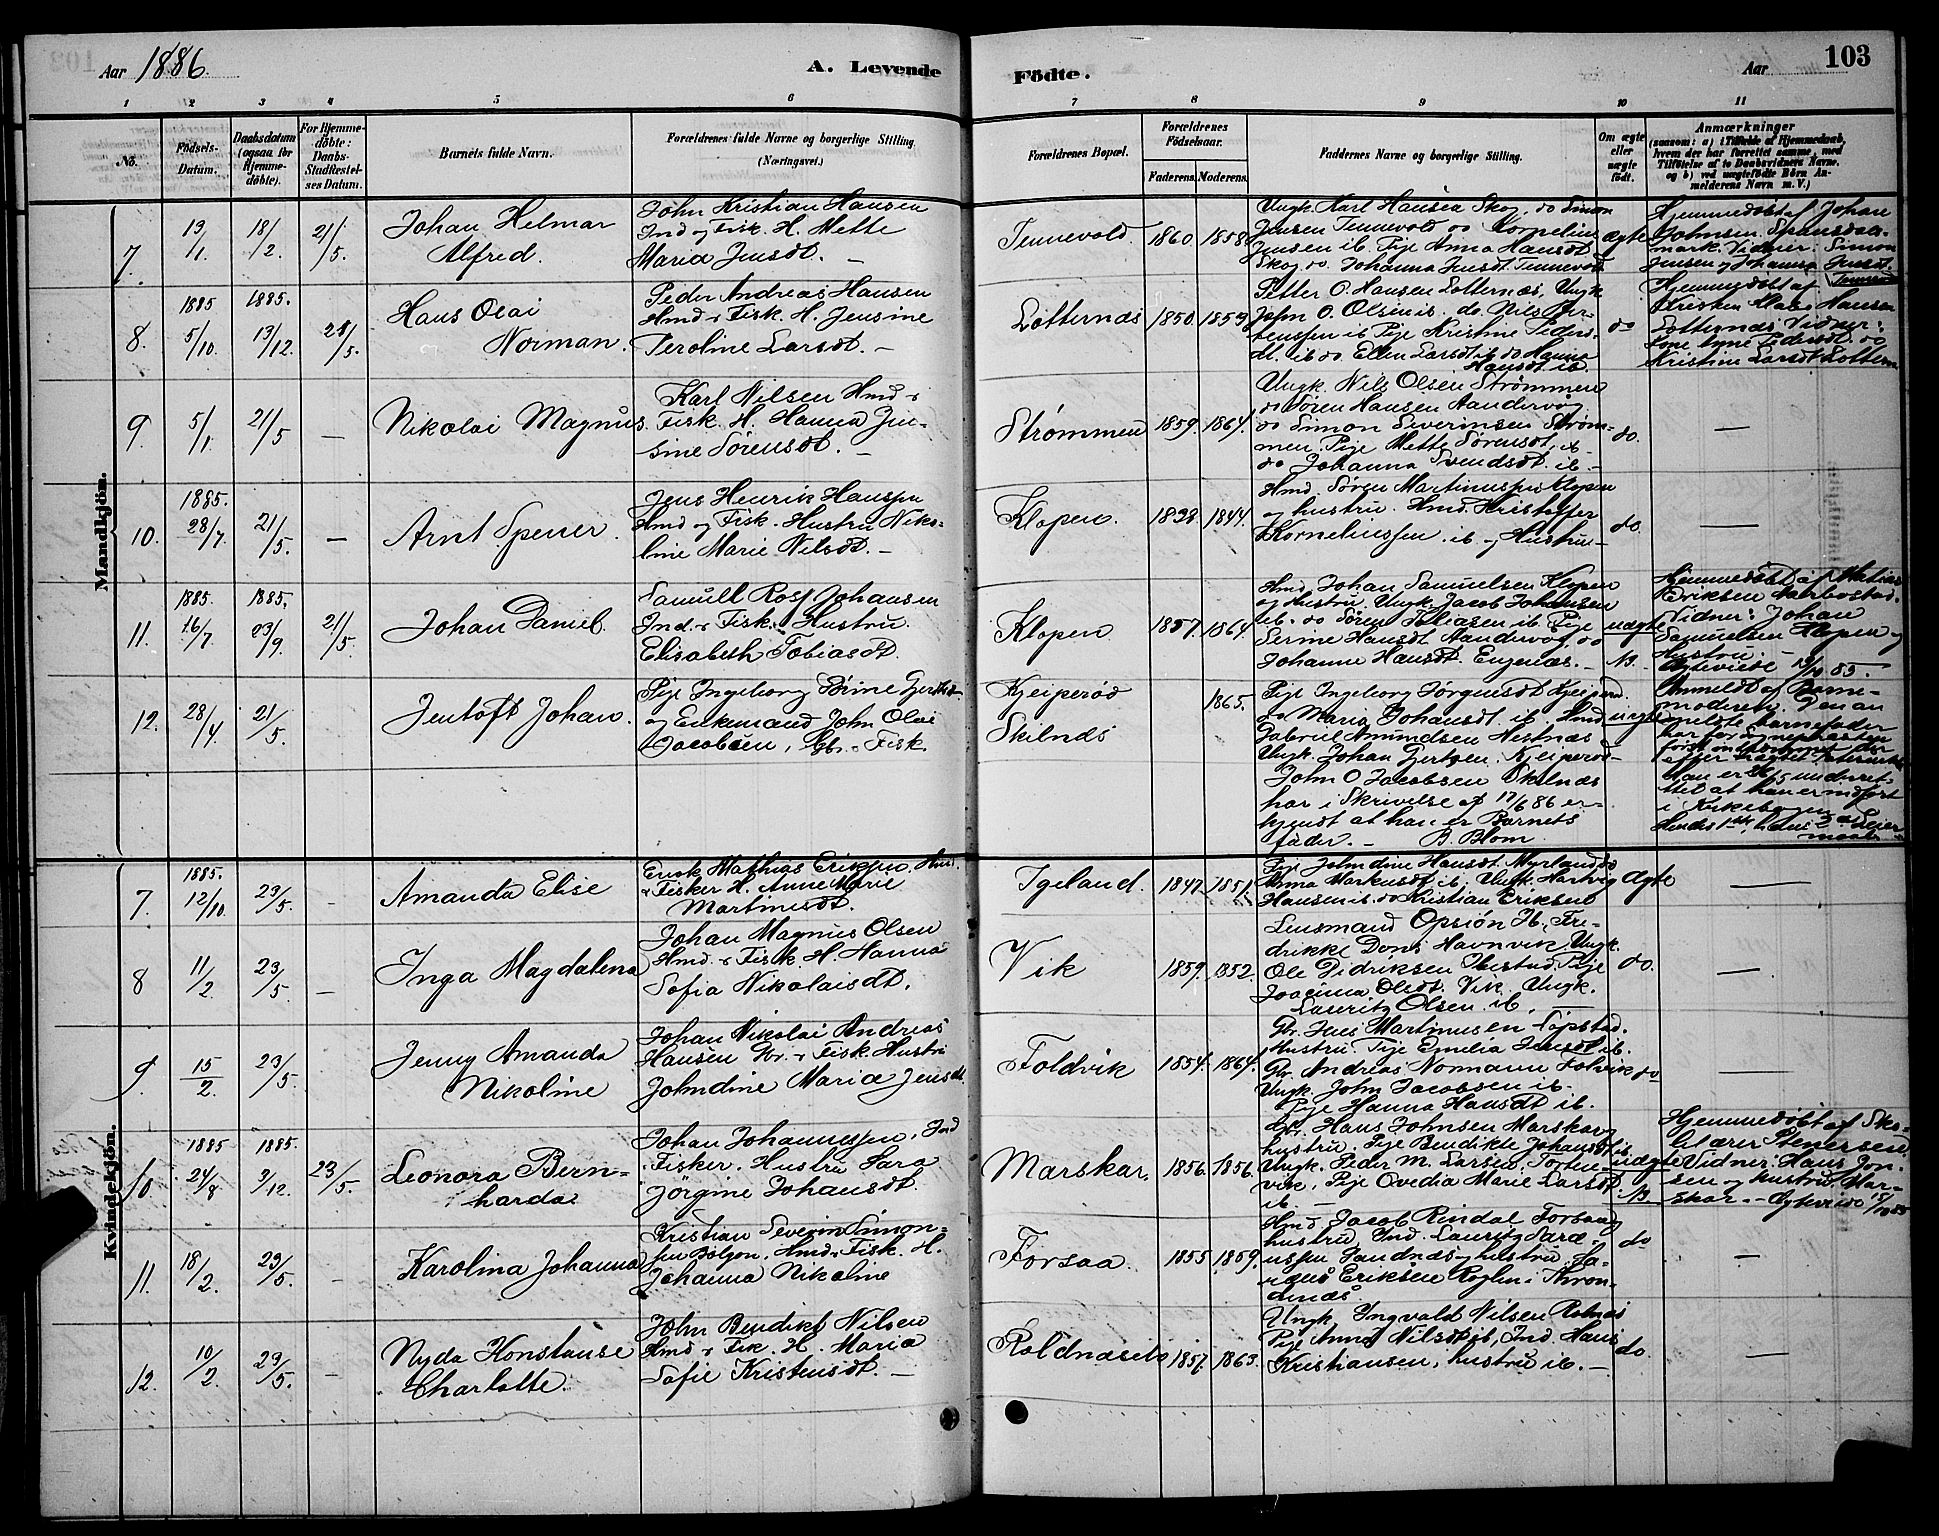 Aar 1886.
A. Levende
Födte.
Aar
103
1 2 3 4 5 6 7 8 9 10 11
No.
Födsels-
Datum.
Daabsdatum
(ogsaa for
Hjemme-
döbte).
For Hjemme-
döbte:
Daabs-
Stadfæstel-
ses Datum.
Barnets fulde Navn.
Forældrenes fulde Navne og borgerlige Stilling
(Næringsvei.)
Forældrenes Bopæl.
Forældrenes
Födselsaar.
Faderens. Moderens.
Faddernes Navne og borgerlige Stilling.
Om ægte
eller
uægte
födt.
Anmærkninger
(saasom: a) i Tilfælde af Hjemmedaab,
hvem der har forrettet samme, med
Tilföielse af to Daabsvidners Navne,
og b) ved uægtefödte Börn An-
melderens Navn m. V.)
Mandkjön.
7. 13/1 18/2 21/5
Johan Helmar
Alfred.
John Kristian Hansen
Ind og Fisk. H. Mette
Maria Jensdt. —
Tennevold. 1860 1858
Ungk. Karl Hansen Skog, do Simon
Jensen Tennevold do Kornelius
Jensen ib Pige Anna Hansdt
Skog do. Johanna Jensdt. Tennevold
ægte
Hjemmedöbt af Johan
Johnsen Spansdals-
mark. Vidner: Simon
Jensen og Johanna Jensdt.
8. 1885 5/10 1885. 13/12. 21/5.
Hans Olai
Norman.
Peder Andreas Hansen
Hmd & Fisk. H. Jensine
Peroline Larsdt. —
Lötternæs 1850. 1859.
Petter O. Hansen Lötternæs, Ungk
John O. Olsen ib. do. Nils Ber-
tenssen ib Pige Kristine Peders-
dt. ib do Ellen Larsdt ib do Hanna
Hansdt ib.
do
Hjemmedöbt af
Kristen Hansen
Lötternæs Vidner:
Pedersdt. do
Kristine Larsdt Löttern
9. 5/1 21/5 —
Nikolai Magnus.
Karl Nilsen Hmd &
Fisk. H. Hanna Jen-
sine Sörensdt. —
Strömmen 1859. 1864.
Ungk. Nils Olsen Strömmen
do Sören Hansen Aandervåg
do Simon Siverinsen Ström-
men. Pige Mette Sörensdt, ib
do Johanna Svendsdt. ib. —
do.
—
10. 1885. 28/7 21/5. —
Arnt Spener.
Jens Henrik Hanssen
Hmd og Fisk. Hustru Niko-
line Marie Nilsdt. —
Klopen. 1828. 1844.
Hmd. Sören Martinussen Klopen
og hustru. Hmd. Kristoffer
Korneliussen. ib og Hustru —
do.
—
11. 1885. 16/7 1885. 23/9. 21/5.
Johan Daniel.
Samull Rosf Johansen
Ind. & Fisk. Hustru
Elisabeth Tobiasdt.
Klopen 1857. 1864.
Hmd Johan Samuelsen Klopen
og Hustru. Ungk. Jacob Johansen
ib. do Sören Tobiasen ib. Pige
Serine Hansdt Aandervåg, do
Johanne Hansdt. Engenæs. —
uægte
N.
Hjemmedöbt af Matias
Eriksen
Vidner: Johan
Samuelsen Klopen og
Hustru —
Ægteviede 15/10 85.
12. 28/4 21/5.
Jentoft Johan.
Pige Ingeborg
og Enkemand John Olai
Jacobsen, Gbr. & Fisk.
Kjeiperöd
Skilnæs
1865.
Pige Ingeborg Jörgensdt Kjeiperöd
do Maria Johansdt ib. Hmd
Gabriel Amundsen Hestnæs
Ungk. Johan Gertsen Kjeiperöd —
John O Jacobsen Skilnæs
har i Skrivelse af 17/6 86 er-
kjendt at han er Barnets
fader. — B. Blom
uægte
Anmeldt af Barne-
moderen. Den an
meldte barnefader
har for ognepresten
Han er underret-
tet at han er indfört
i Kirkebogen
Kvindekjön.
7. 1885. 12/10. 23/5. —
Amanda Elise
Erick Mathias Eriksen Hmd.
& Fisker H. Anne Marie
Martinusdt.
Igeland. 1847. 1851.
Pige Johndine Hansdt. Myrland do
Anna Markusdt ib. Ungk Hartvig
Hansen ib. do Kristian Eriksen
ægte
—
8 11/2 23/5. —
Inga Magdalena
Johan Magnus Olsen
Hmd. & Fisk. H. Hanna
Sofia Nikolaisdt.
Vik 1859. 1852.
Lensmand Opsiön Ib., Fre-
drikke Dons Havnvik. Ungk.
Ole Didriksen Ibestad. Pige
Joacima Olsdt. Vik. Ungk.
Lauritz Olsen ib. —
do.
—
9. 15/2 23/5.
Jenny Amanda
Nikoline
Johan Nikolai Andreas
Hansen Gbr. & Fisk. Hustru
Johndine Maria Jensdt
Foldvik 1854. 1864.
Gbr. Jens Martinusen Löpstad.
Hustru. Pige Emelia Jensdt ib.
Gbr. Andreas Normann Folvik
Ungk. John Jacobsen ib.
Pige Hanna Hansdt ib.
do
10 1885 24/8 1885. 3/12. 23/5.
Leonora Bern-
harda
Johan Johannessen. Ind
Fisker. Hustru Sara
Jörgine Johansdt.
Marskar. 1856. 1856.
Gbr. Hans Johnsen Marskar og
hustru, Pige Bendikte Johansdt ib
Ungk. Peder M. Larsen, Forten-
vik, Pige Ovedia Marie Larsdt
ib —
uægte
N.
Hjemmedöbt af Sko-
lelærer Stenersen
Vidner: Hans Jon-
sen og hustru Mar-
skar. — Ægteviede 15/10 85
11. 18/2. 23/5. —
Karolina Johanna
Kristian Severin Simon-
sen Bölgen. Hmd & Fisk. H.
Johanna Nikoline
Forsaa. 1855 1859.
Hmd. Jacob Rindal Forsaa og
hustru Ind. Lauritz
Sandnæs og hustru
Eriksen i Thron-
denæs.
do
—
12. 10/2. 23/5. —
Nyda Konstanse
Charlotte.
John Bendikt Nilsen
Hmd & Fisk. H. Maria
Sofie Kristensdt. —
Roldnæseth 1857. 1863.
Ungk Ingvald Nilsen Rolnæs
Pige Anna Nilsdt ib, Ind. Hans
Kristiansen, hustru ib. —
do.
—